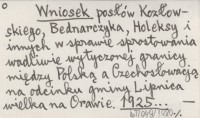 Wniosek posłów Kozłow-
skiego, Bednarczyka, Holeksy i
innych w sprawie sprostowania
wadliwie wytyczonej granicy
między Polską a Czechosłowacją
na odcinku gminy Lipnica
wielka na Orawie. 1925...